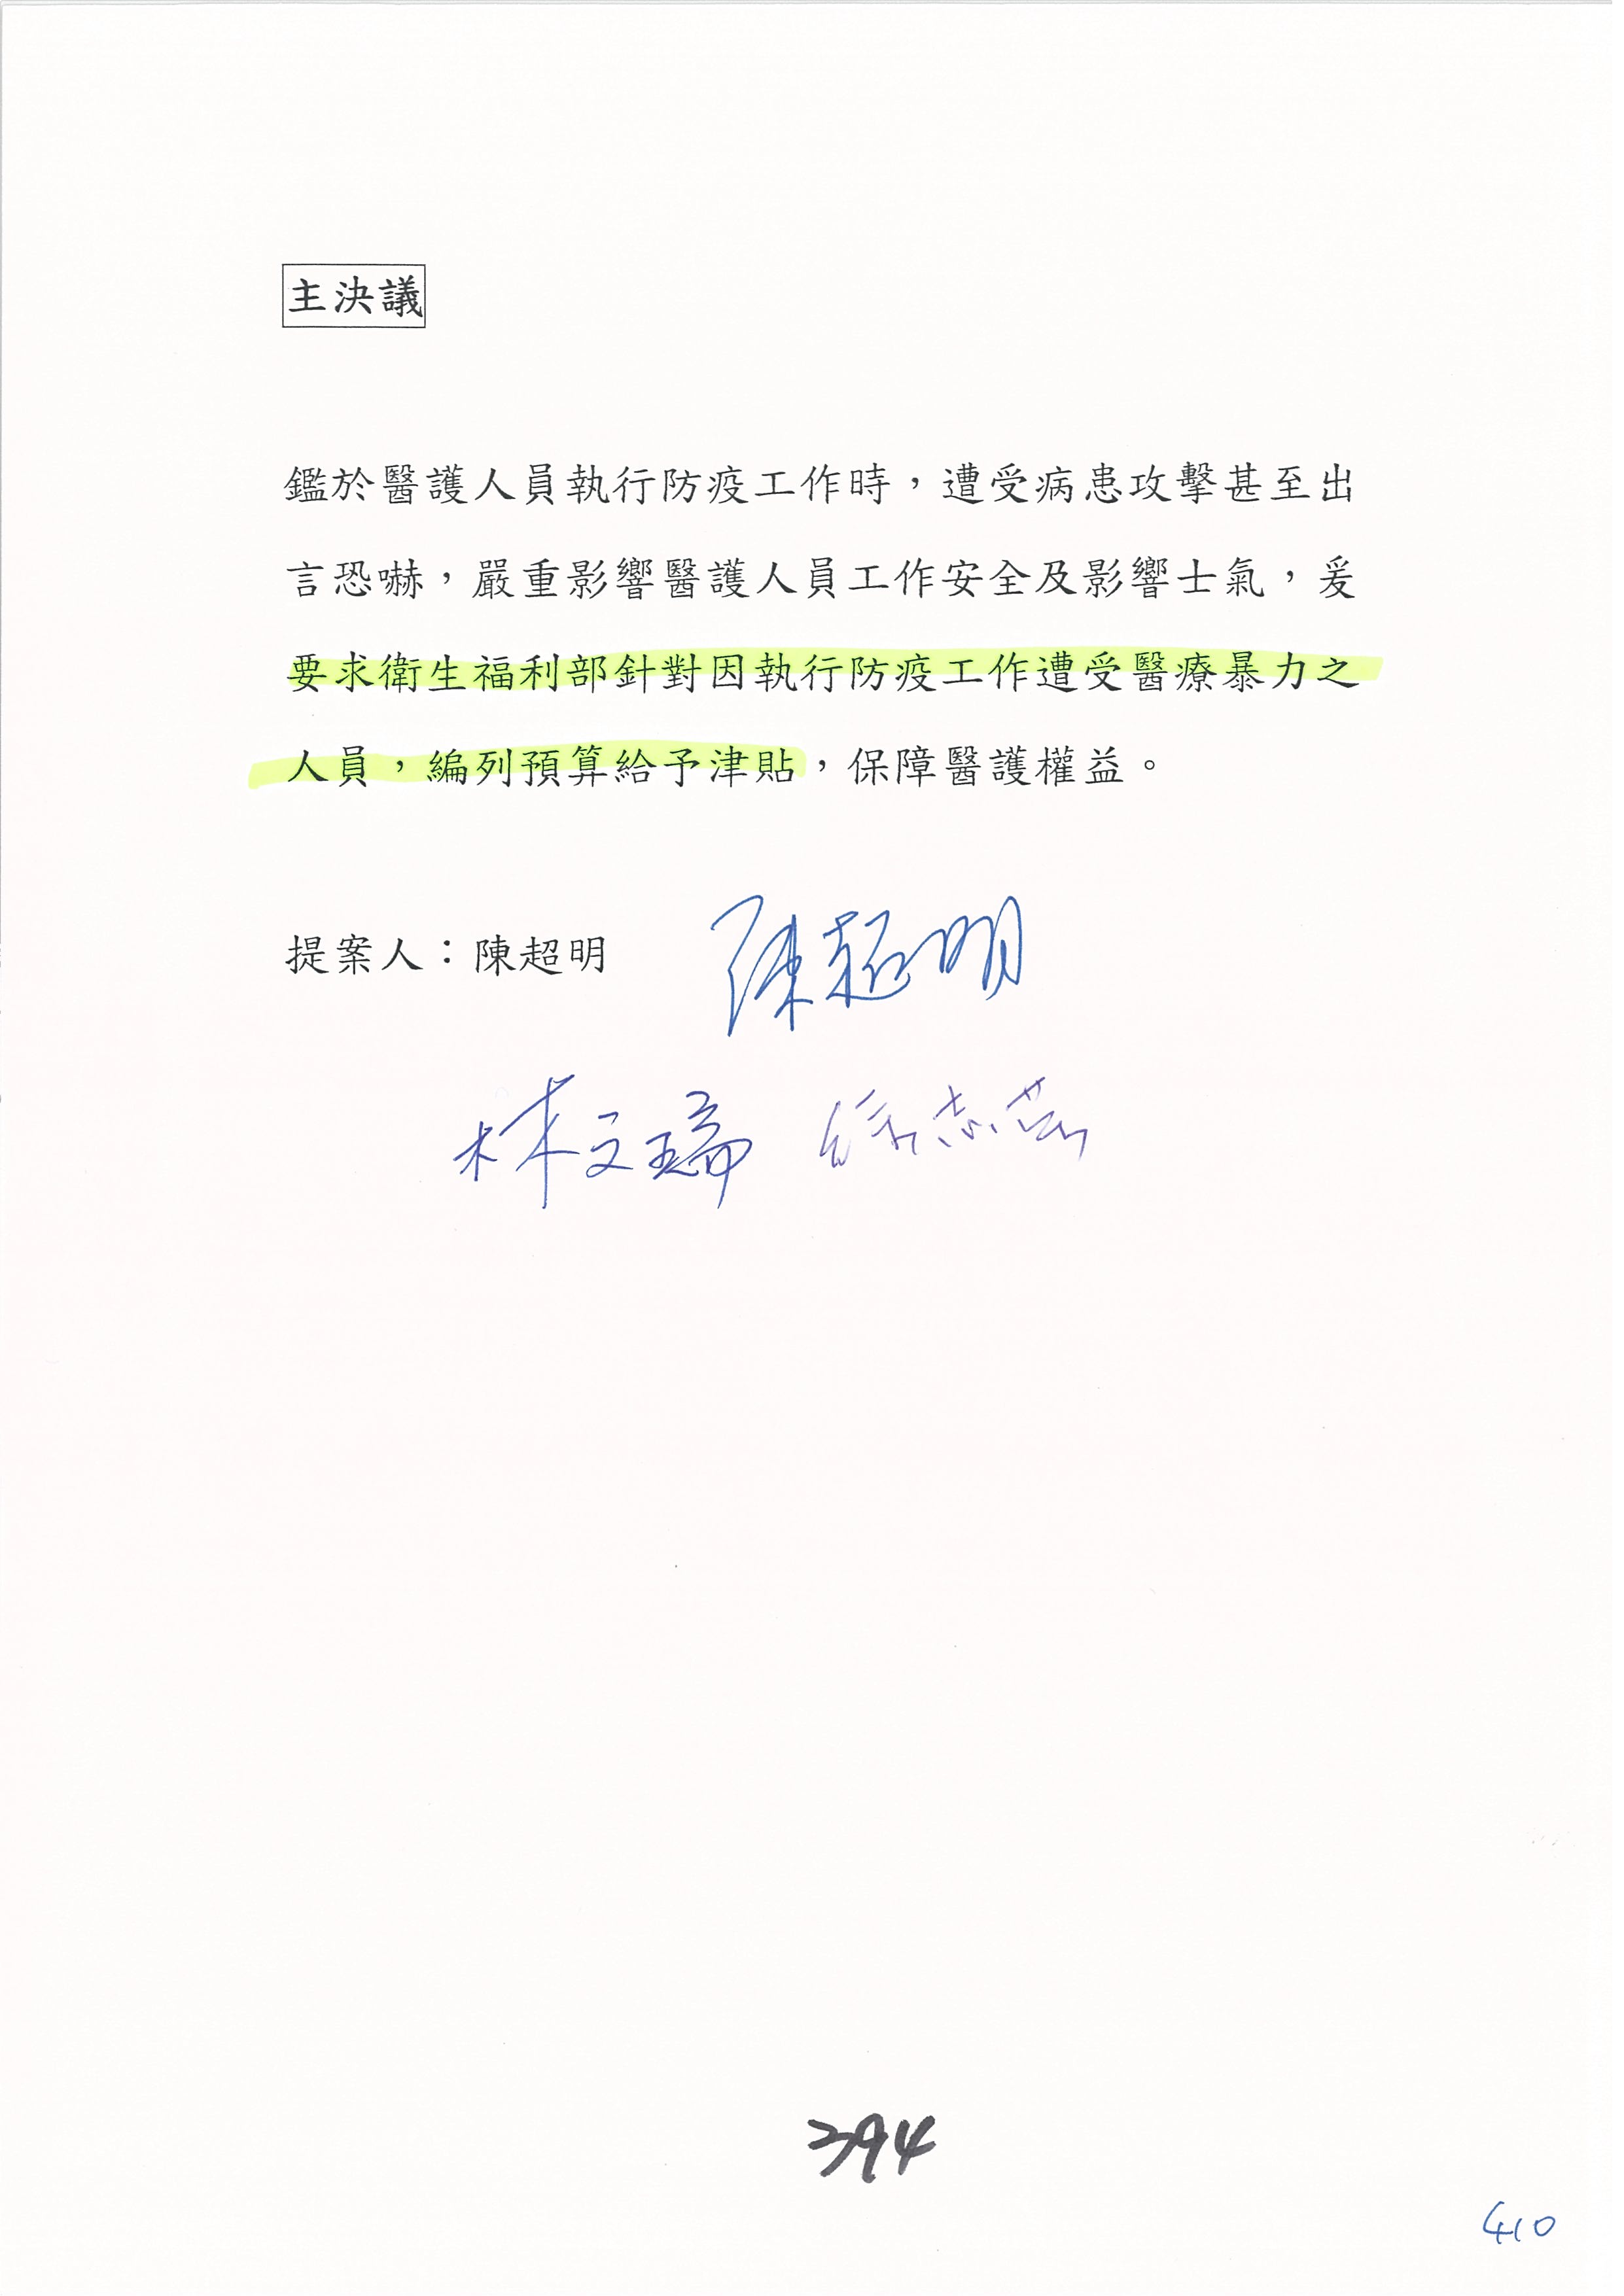 主決議
鑑於醫護人員執行防疫工作時，遭受病患攻擊甚至出
言恐嚇，嚴重影響醫護人員工作安全及影響士氣，爰
要求衛生福利部針對因執行防疫工作遭受醫療暴力之
人員，編列預算給予津貼，保障醫護權益。
提案人：陳超明 陳超明
林文瑞 徐志榮
394
410